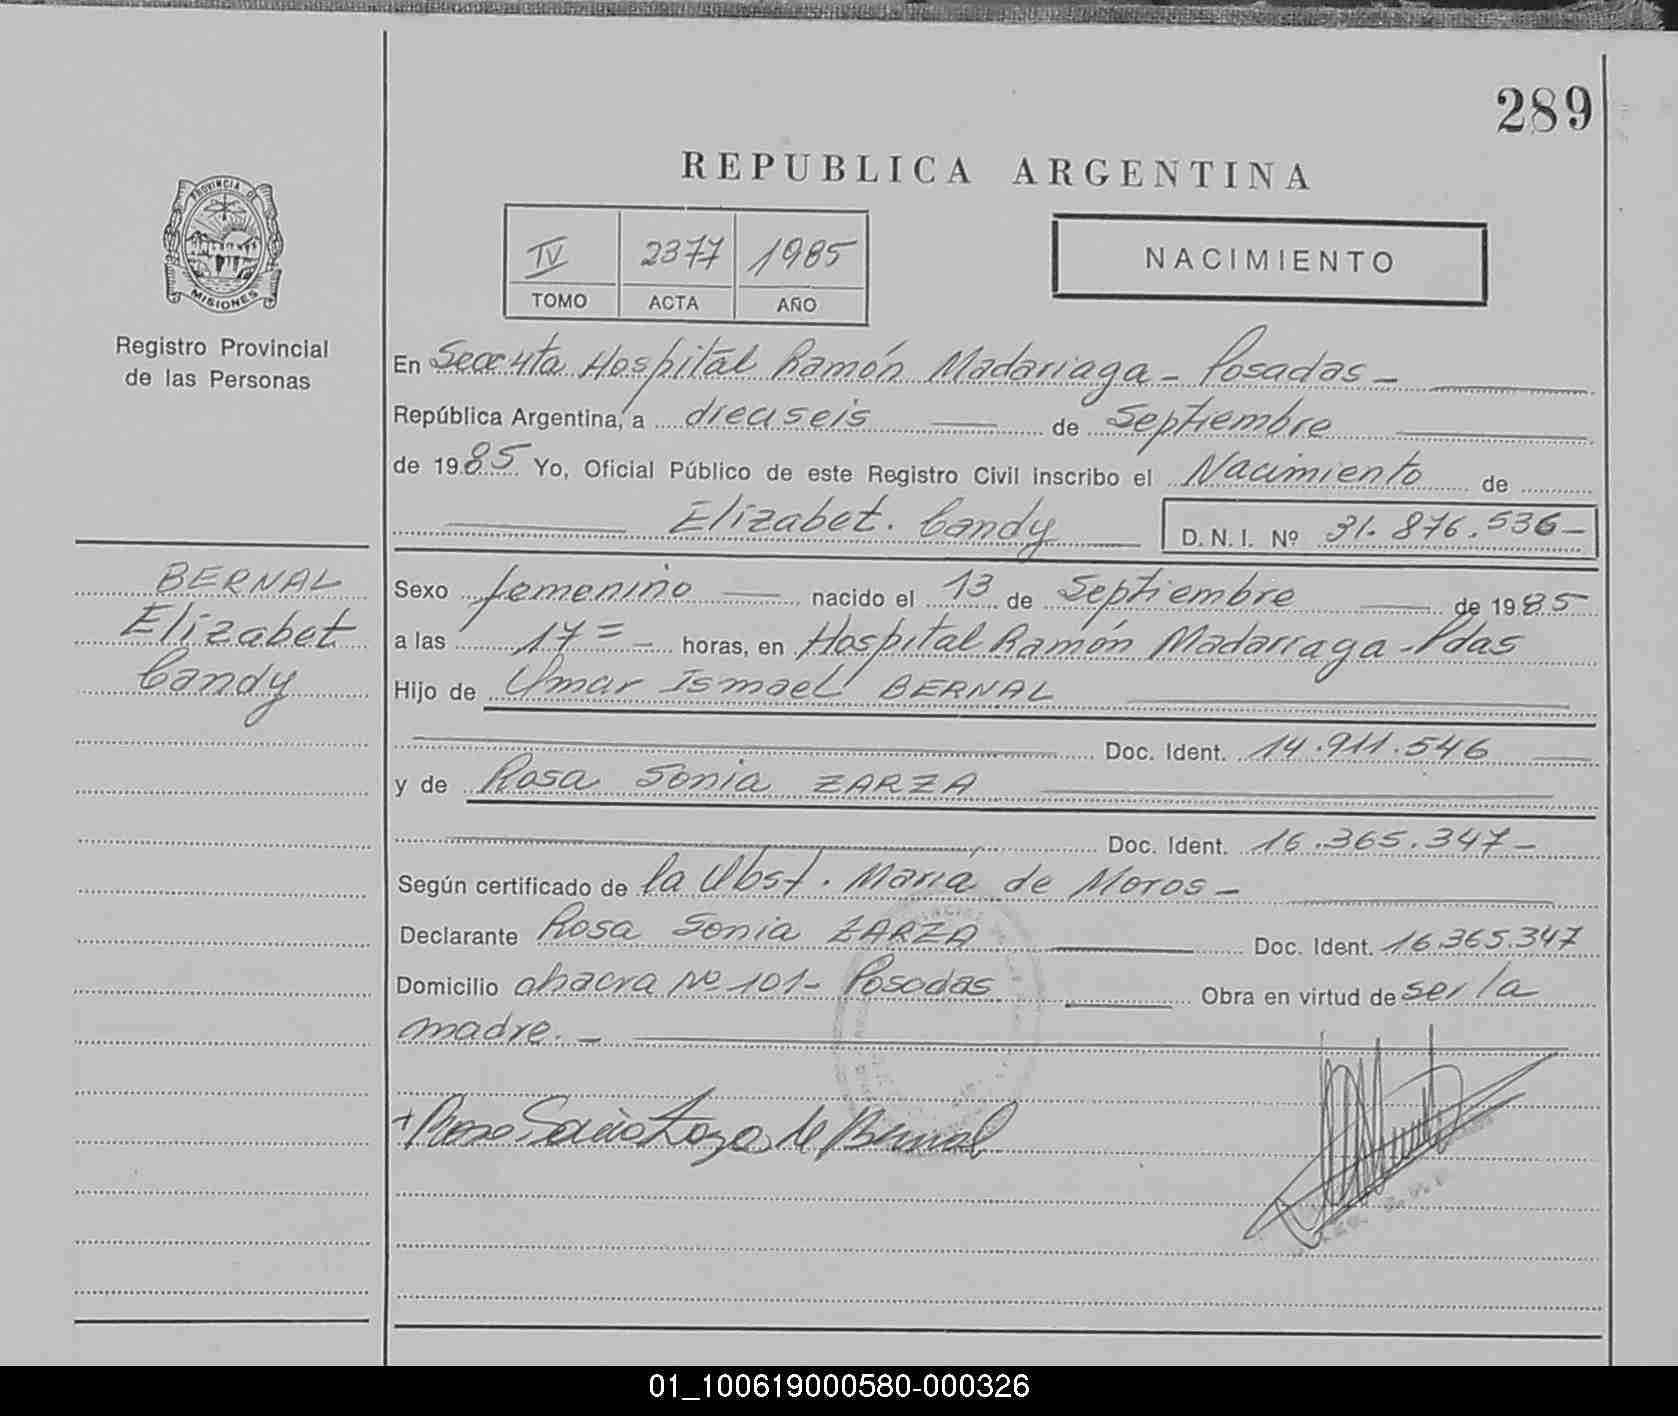 289
REPUBLICA ARGENTINA
PROVINCIA DE
MISIONES
Registro Provincial
de las Personas
IV 2377 1985
TOMO ACTA AÑO
NACIMIENTO
En Secc 4ta Hospital Ramón Madariaga - Posadas -
República Argentina, a dieciseis de Septiembre
de 1985 Yo, Oficial Público de este Registro Civil inscribo el Nacimiento de
Elizabet Candy D. N. I. Nº 31.876.536-
BERNAL
Elizabet
Candy
Sexo femenino nacido el 13 de Septiembre de 1985
a las 17= - horas, en Hospital Ramón Madariaga - Pdas
Hijo de Omar Ismael BERNAL
Doc. Ident. 14.911.546
y de Rosa Sonia ZARZA
Doc. Ident. 16.365.347-
Según certificado de la Obst. María de Moros -
Declarante Rosa Sonia ZARZA Doc. Ident. 16.365.347
Domicilio chacra Nº 101- Posadas Obra en virtud de ser la
madre. -
de Bernal
01_100619000580-000326